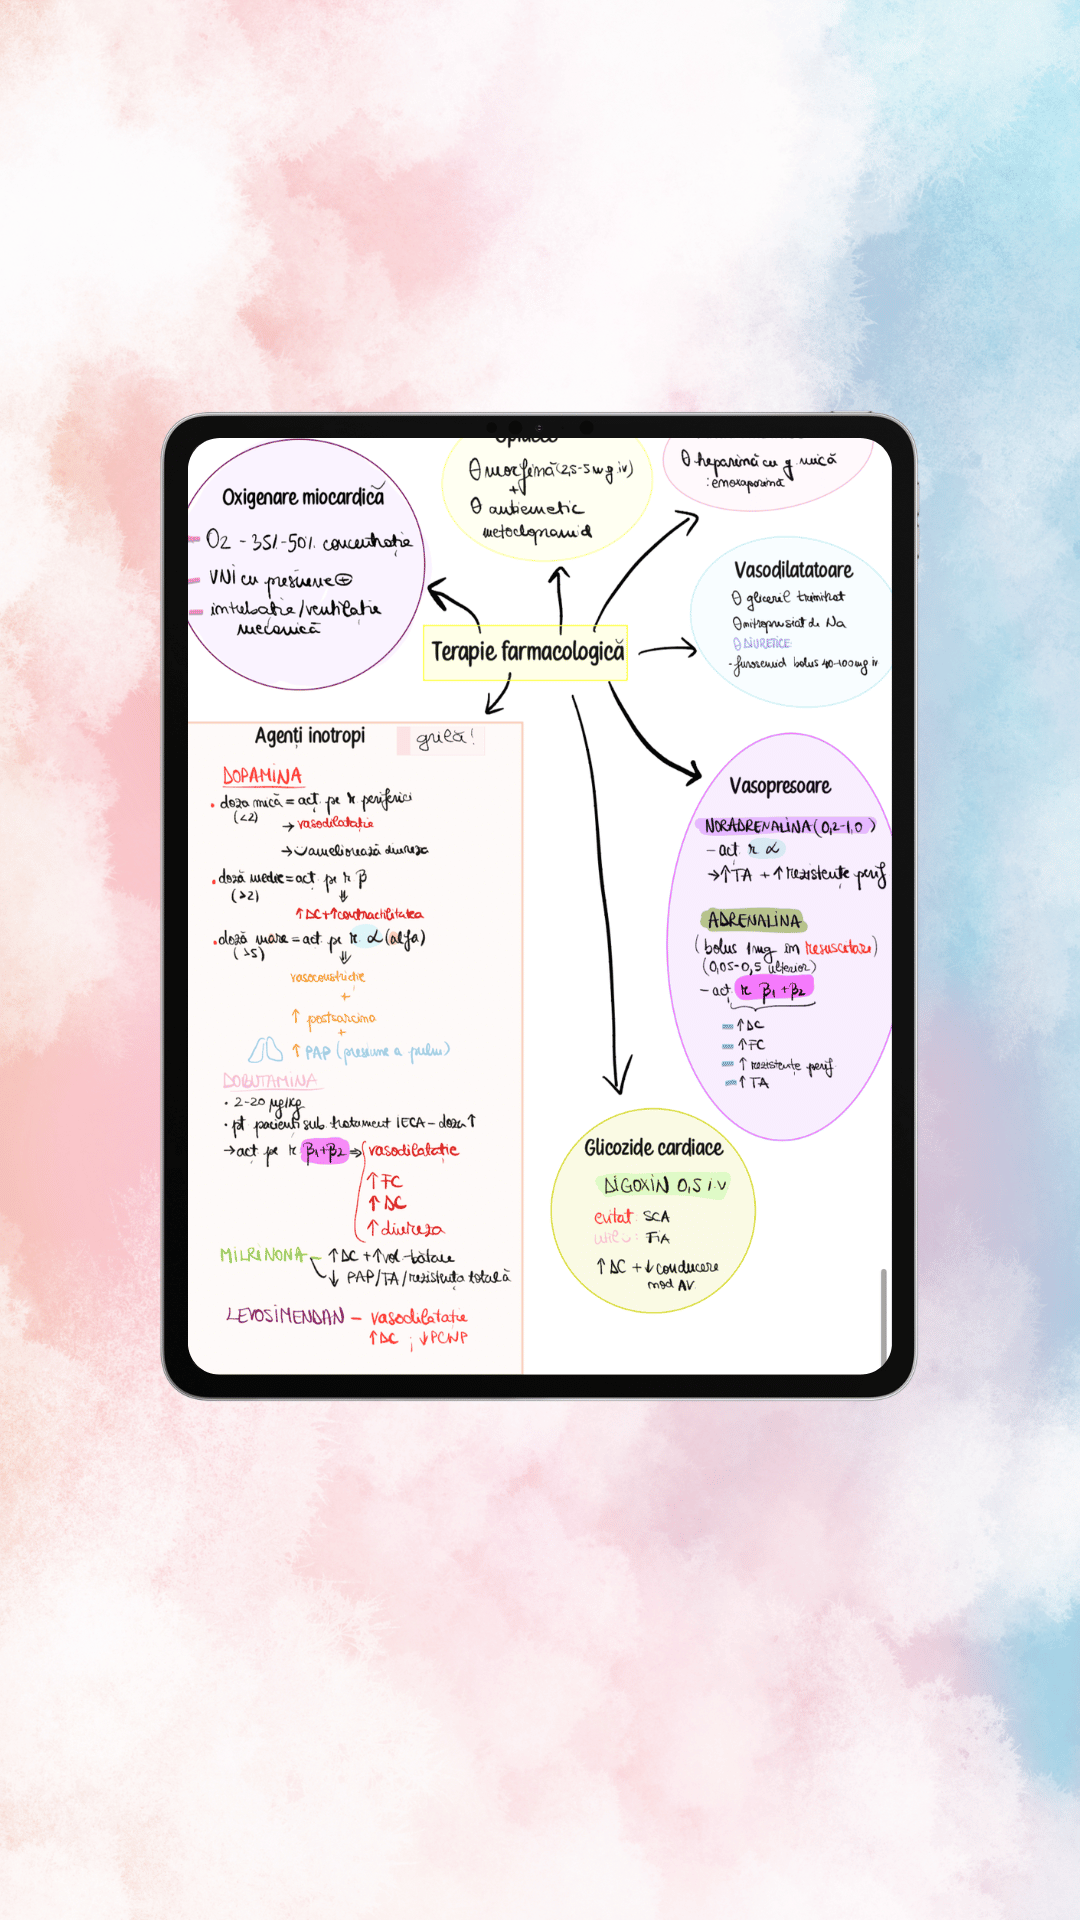 Oxigenare miocardică
O2 - 35%-50% concentrație
VNI cu presiune ⊕
intubație/ventilație
mecanică
Opiacee
morfină (2,5-5 mg iv)
+
antiemetic
metoclopramid
heparină cu g. mică
: enoxaparină
Vasodilatatoare
gliceril trinitrat
nitroprusiat de Na
DIURETICE:
- furosemid bolus 40-100 mg iv
Terapie farmacologică
Agenți inotropi
grilă!
DOPAMINA
• doza mică = acț. pe r periferici
(<2)
→ vasodilatație
→ ameliorează diureza
• doză medie = acț pe r β
(>2)
⇓
↑DC+↑contractilitatea
• doză mare = act. pe r. α (alfa)
(>5)
⇓
vasoconstricție
+
↑ postsarcina
+
↑ PAP (presiune a pulm)
DOBUTAMINA
• 2-20 μg/kg
• pt pacienți sub tratament IECA - doza ↑
→ acț pe r β1+β2 ⇒ vasodilatație
↑ FC
↑ DC
↑ diureza
MILRINONA - ↑DC + ↑vol-bătaie
↓ PAP/TA/rezistența totală
LEVOSIMENDAN - vasodilatație
↑DC ; ↓PCNP
Vasopresoare
NORADRENALINA (0,2-1,0)
- act r α
→↑TA + ↑ rezistențe perif
ADRENALINA
(bolus 1mg în resuscitare)
(0,05-0,5 ulterior)
- act r β1 + β2
↑DC
↑FC
↑ rezistențe perif
↑TA
Glicozide cardiace
DIGOXIN 0,5 i.v
evitat: SCA
util: FiA
↑DC + ↓ conducere
nod AV